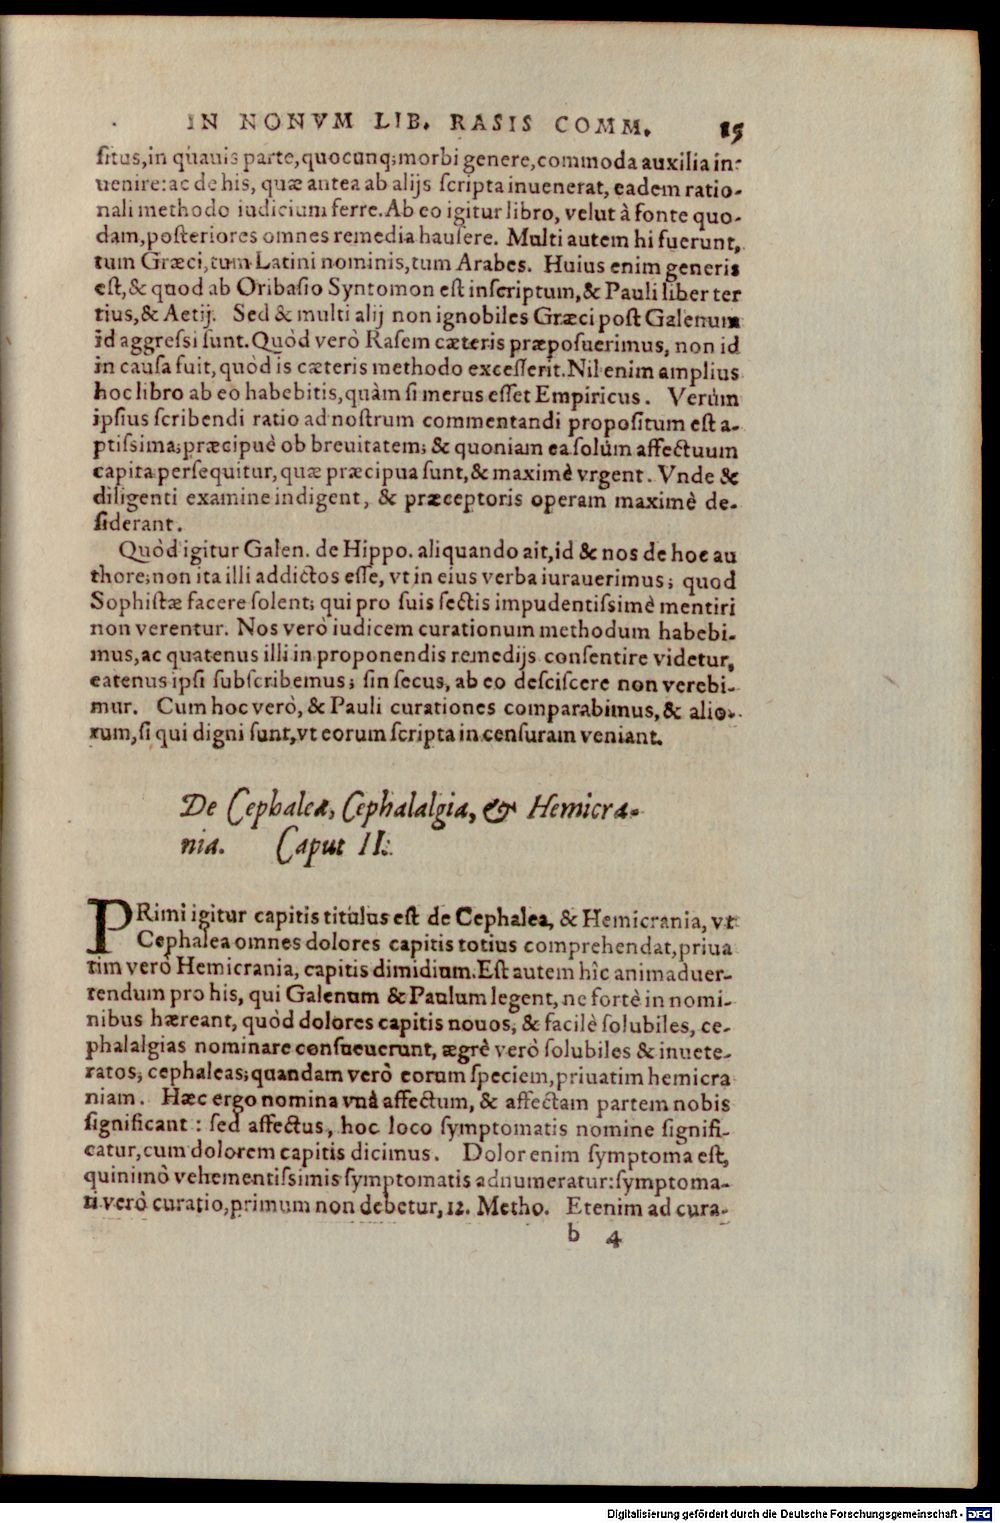 IN NONVM LIB. RASIS COMM. 15
ſitus,in quauis parte,quocunq;morbi genere,commoda auxilia in-
uenire:ac de his, quæ antea ab alijs ſcripta inuenerat, eadem ratio-
nali methodo iudicium ferre.Ab eo igitur libro, velut à fonte quo-
dam,poſteriores omnes remedia hauſere. Multi autem hi fuerunt,
tum Græci,tum Latini nominis,tum Arabes. Huius enim generis
eſt,& quod ab Oribaſio Syntomon eſt inſcriptum,& Pauli liber ter
tius,& Aetij. Sed & multi alij non ignobiles Græci poſt Galenum
id aggreſſi ſunt.Quòd verò Raſem cæteris præpoſuerimus, non id
in cauſa fuit,quòd is cæteris methodo exceſſerit.Nil enim amplius
hoc libro ab eo habebitis,quàm ſi merus eſſet Empiricus. Verùm
ipſius ſcribendi ratio ad noſtrum commentandi propoſitum eſt a-
ptiſsima;præcipuè ob breuitatem; & quoniam ea ſolùm affectuum
capita perſequitur,quæ præcipua ſunt,& maximè vrgent. Vnde &
diligenti examine indigent, & præceptoris operam maximè de-
ſiderant.
Quòd igitur Galen. de Hippo. aliquando ait,id & nos de hoc au
thore;non ita illi addictos eſſe, vt in eius verba iurauerimus; quod
Sophiſtæ facere ſolent; qui pro ſuis ſectis impudentiſsimè mentiri
non verentur. Nos verò iudicem curationum methodum habebi-
mus,ac quatenus illi in proponendis remedijs conſentire videtur,
eatenus ipſi ſubſcribemus; ſin ſecus, ab eo deſciſcere non verebi-
mur. Cum hoc verò, & Pauli curationes comparabimus,& alio-
rum,ſi qui digni ſunt,vt eorum ſcripta in cenſuram veniant.
De Cephalea, Cephalalgia, & Hemicra-
nia. Caput II.
PRimi igitur capitis titulus eſt de Cephalea, & Hemicrania, vt
Cephalea omnes dolores capitis totius comprehendat,priua
tim verò Hemicrania, capitis dimidium.Eſt autem hîc animaduer-
tendum pro his, qui Galenum & Paulum legent, ne fortè in nomi-
nibus hæreant, quòd dolores capitis nouos, & facilè ſolubiles, ce-
phalalgias nominare conſueuerunt, ægrè verò ſolubiles & inuete-
ratos, cephaleas;quandam verò eorum ſpeciem,priuatim hemicra
niam. Hæc ergo nomina vnà affectum, & affectam partem nobis
ſignificant : ſed affectus, hoc loco ſymptomatis nomine ſignifi-
catur,cum dolorem capitis dicimus. Dolor enim ſymptoma eſt,
quinimò vehementiſsimis ſymptomatis adnumeratur:ſymptoma-
ti verò curatio,primum non debetur,12. Metho. Etenim ad cura-
b 4
Digitalisierung gefördert durch die Deutsche Forschungsgemeinschaft - DFG